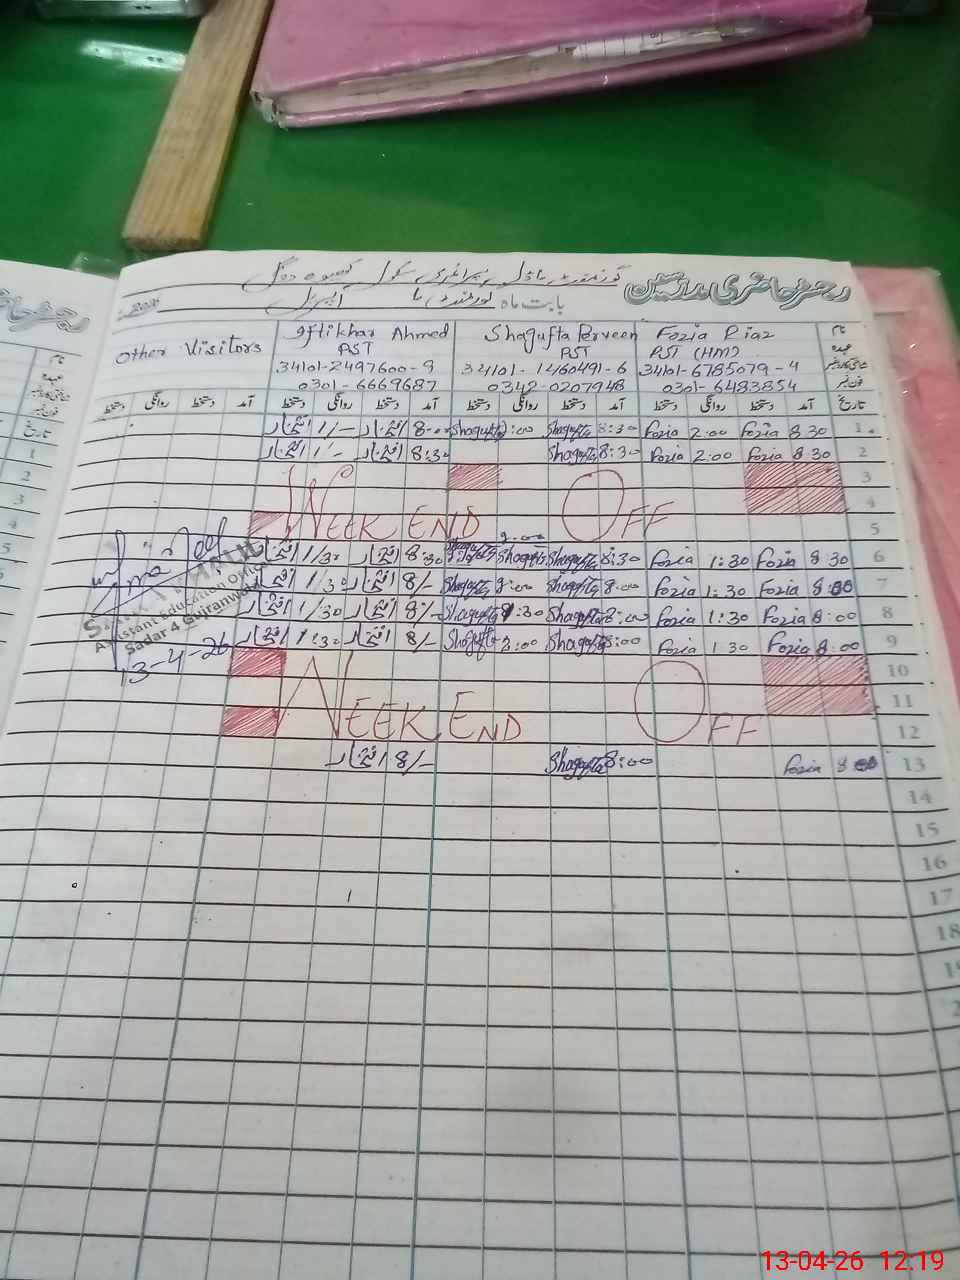 رجسٹر حاضری مدرسین گورنمنٹ ماڈل پرائمری سکول
بابت ماہ اپریل 2026
نام Fozia Riaz Shagufta Perveen Iftikhar Ahmed Other Visitors
عہدہ PST (HM) PST PST
34101-6785079-4 34101-1460491-6 34101-2497600-9
فون نمبر 0301-6483854 0342-0207948 0301-6669687
تاریخ آمد دستخط روانگی دستخط آمد دستخط روانگی دستخط آمد دستخط روانگی دستخط آمد دستخط روانگی دستخط
1 8:30 Fozia 2:00 Fozia 8:30 Shagufta 2:00 Shagufta 8:00 افتخار 1/- افتخار
2 8:30 Fozia 2:00 Fozia 8:30 Shagufta 8:30 افتخار 1/- افتخار
3
4 WEEK END OFF
5
6 8:30 Fozia 1:30 Fozia 8:30 Shagufta 2:00 Shagufta 8:30 افتخار 1/30 افتخار
7 8:00 Fozia 1:30 Fozia 8:00 Shagufta 2:00 Shagufta 8/- افتخار 1/30 افتخار
8 8:00 Fozia 1:30 Fozia 8:00 Shagufta 1:30 Shagufta 8/- افتخار 1/30 افتخار
9 8:00 Fozia 1:30 Fozia 8:00 Shagufta 2:00 Shagufta 8/- افتخار 1:30 افتخار
Assistant Education Officer
Sadar 4 Gujranwala
13-4-26
10
11 WEEK END OFF
12
13 8:00 Fozia 8:00 Shagufta 8/- افتخار
14
15
16
17
18
13-04-26 12:19